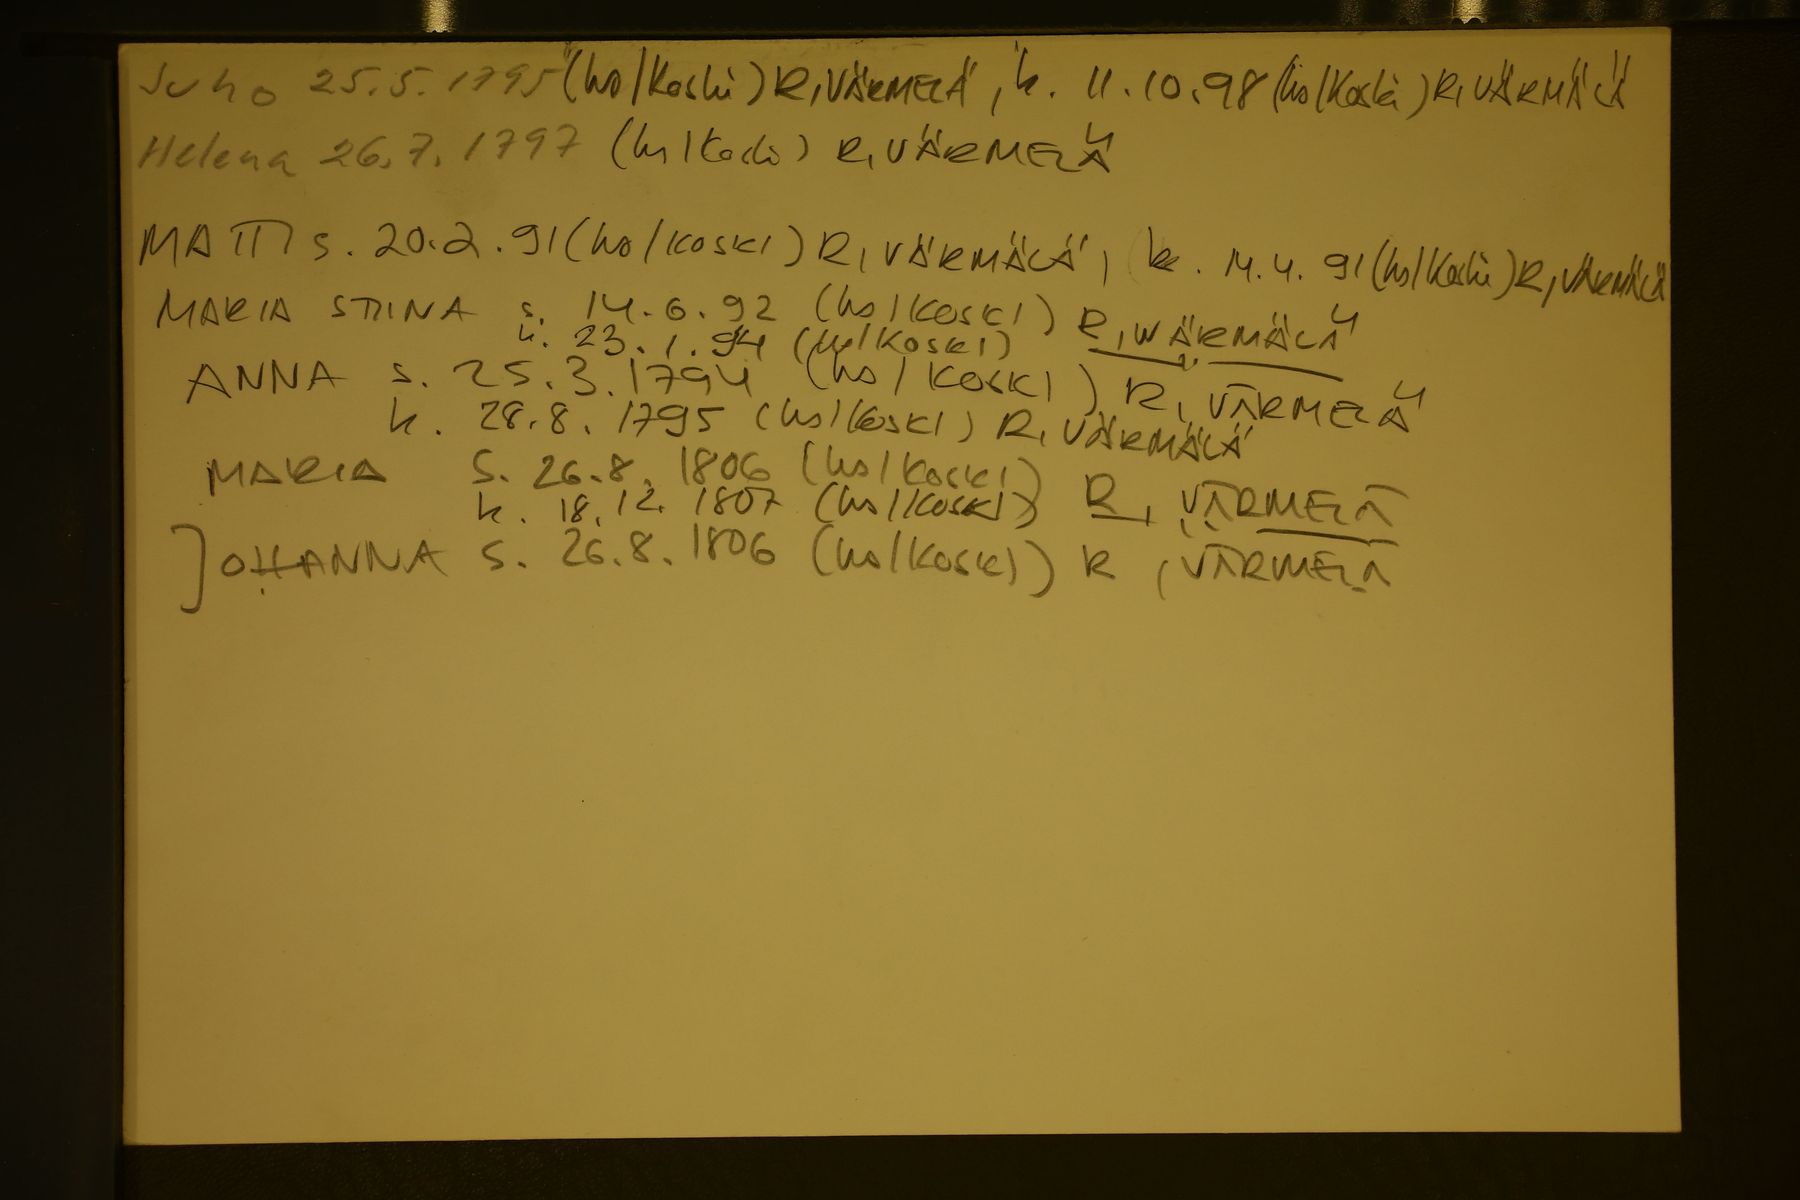 Juho 25.5.1795 (ho/Koski) R, VÄRMELÄ, k. 11.10.98 (ho/Koski) R, VÄRMÄLÄ
Helena 26.7.1797 (ho/Koski) R, VÄRMELÄ
MATTI s. 20.2.91 (ho/KOSKI) R, VÄRMÄLÄ, k. 14.4.91 (ho/Koski) R, VÄRMÄLÄ
MARIA STIINA s. 14.6.92 (ho/KOSKI) R, WÄRMÄLÄ
k. 23.1.94 (ho/KOSKI)
ANNA s. 25.3.1794 (ho/KOSKI) R, VÄRMELÄ
k. 28.8.1795 (ho/KOSKI) R, VÄRMÄLÄ
MARIA S. 26.8.1806 (ho/KOSKI)
k. 18.12.1807 (ho/KOSKI) R, VÄRMELÄ
JOHANNA S. 26.8.1806 (ho/KOSKI) R, VÄRMELÄ